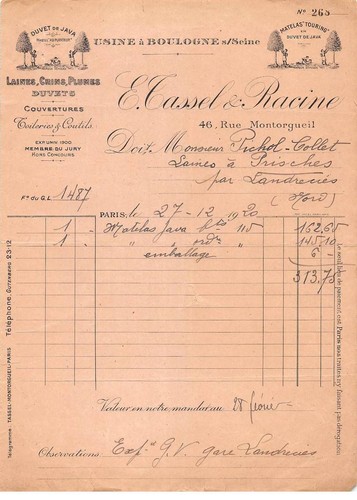 N° 265
DUVET DE JAVA
MATELAS "TOURING"
EN
DUVET DE JAVA
USINE à BOULOGNE s/Seine
LAINES, CRINS, PLUMES
DUVETS
COUVERTURES
Toileries & Coutils
EXP. UNIV. 1900
MEMBRE DU JURY
HORS CONCOURS
E. Tassel & Racine
46, Rue Montorgueil
Doit Monsieur Pichol-Collet
Laines à Prisches
par Landrecies
(Nord)
F° DU G.L. 1487
PARIS, le 27-12 1920
1 Matelas Java 115 162,65
1 " " ordre 145 10
emballage 6 -
313,75
Valeur en notre mandat au 28 février
Observations Exp°n G.V. gare Landrecies
Téléphone GUTENBERG 23-12
Télégramme: TASSEL-MONTORGUEIL-PARIS
Le seul lieu de paiement est Paris nos traites n'y faisant pas dérogation.